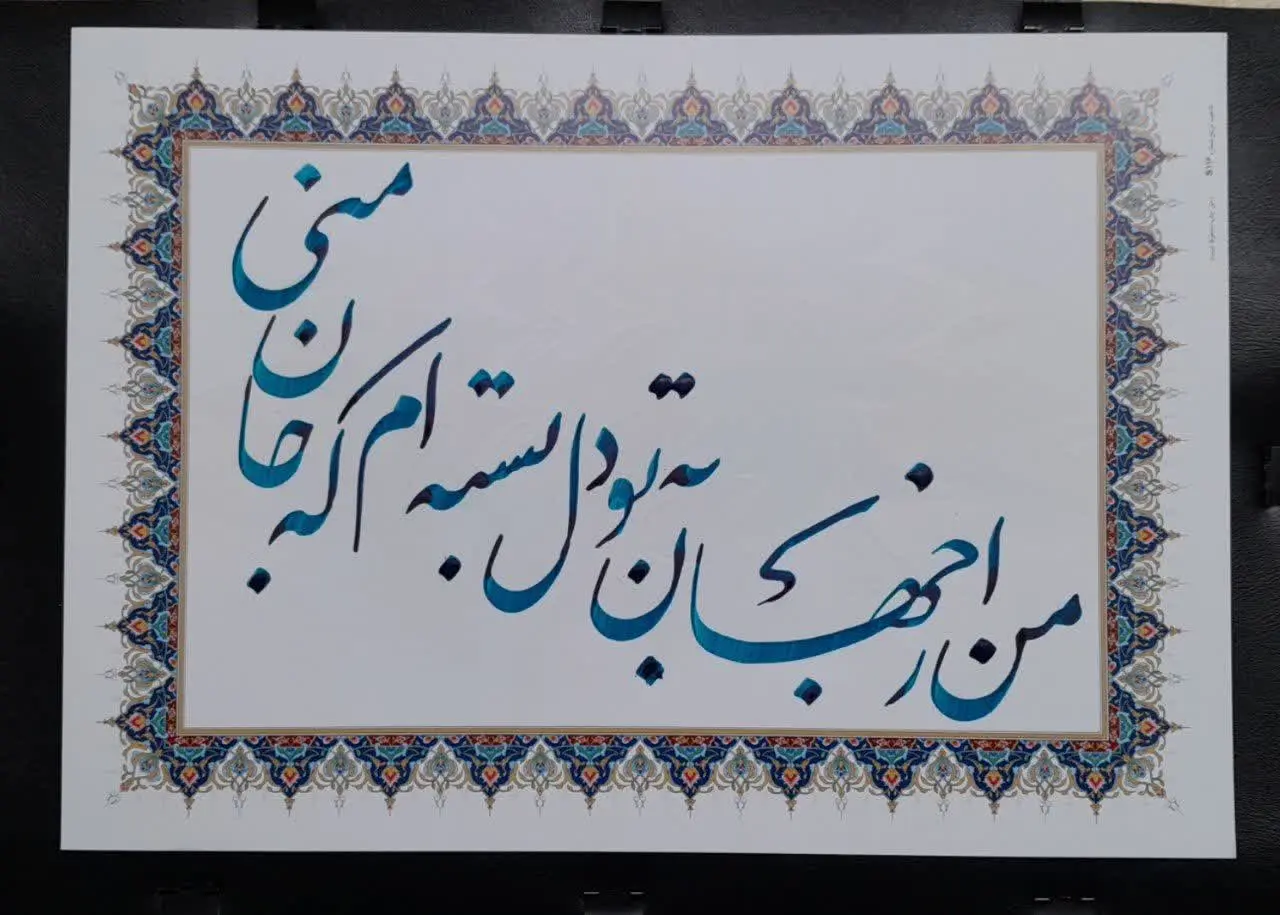 من از جهان به تو دل بسته ام که جان منی